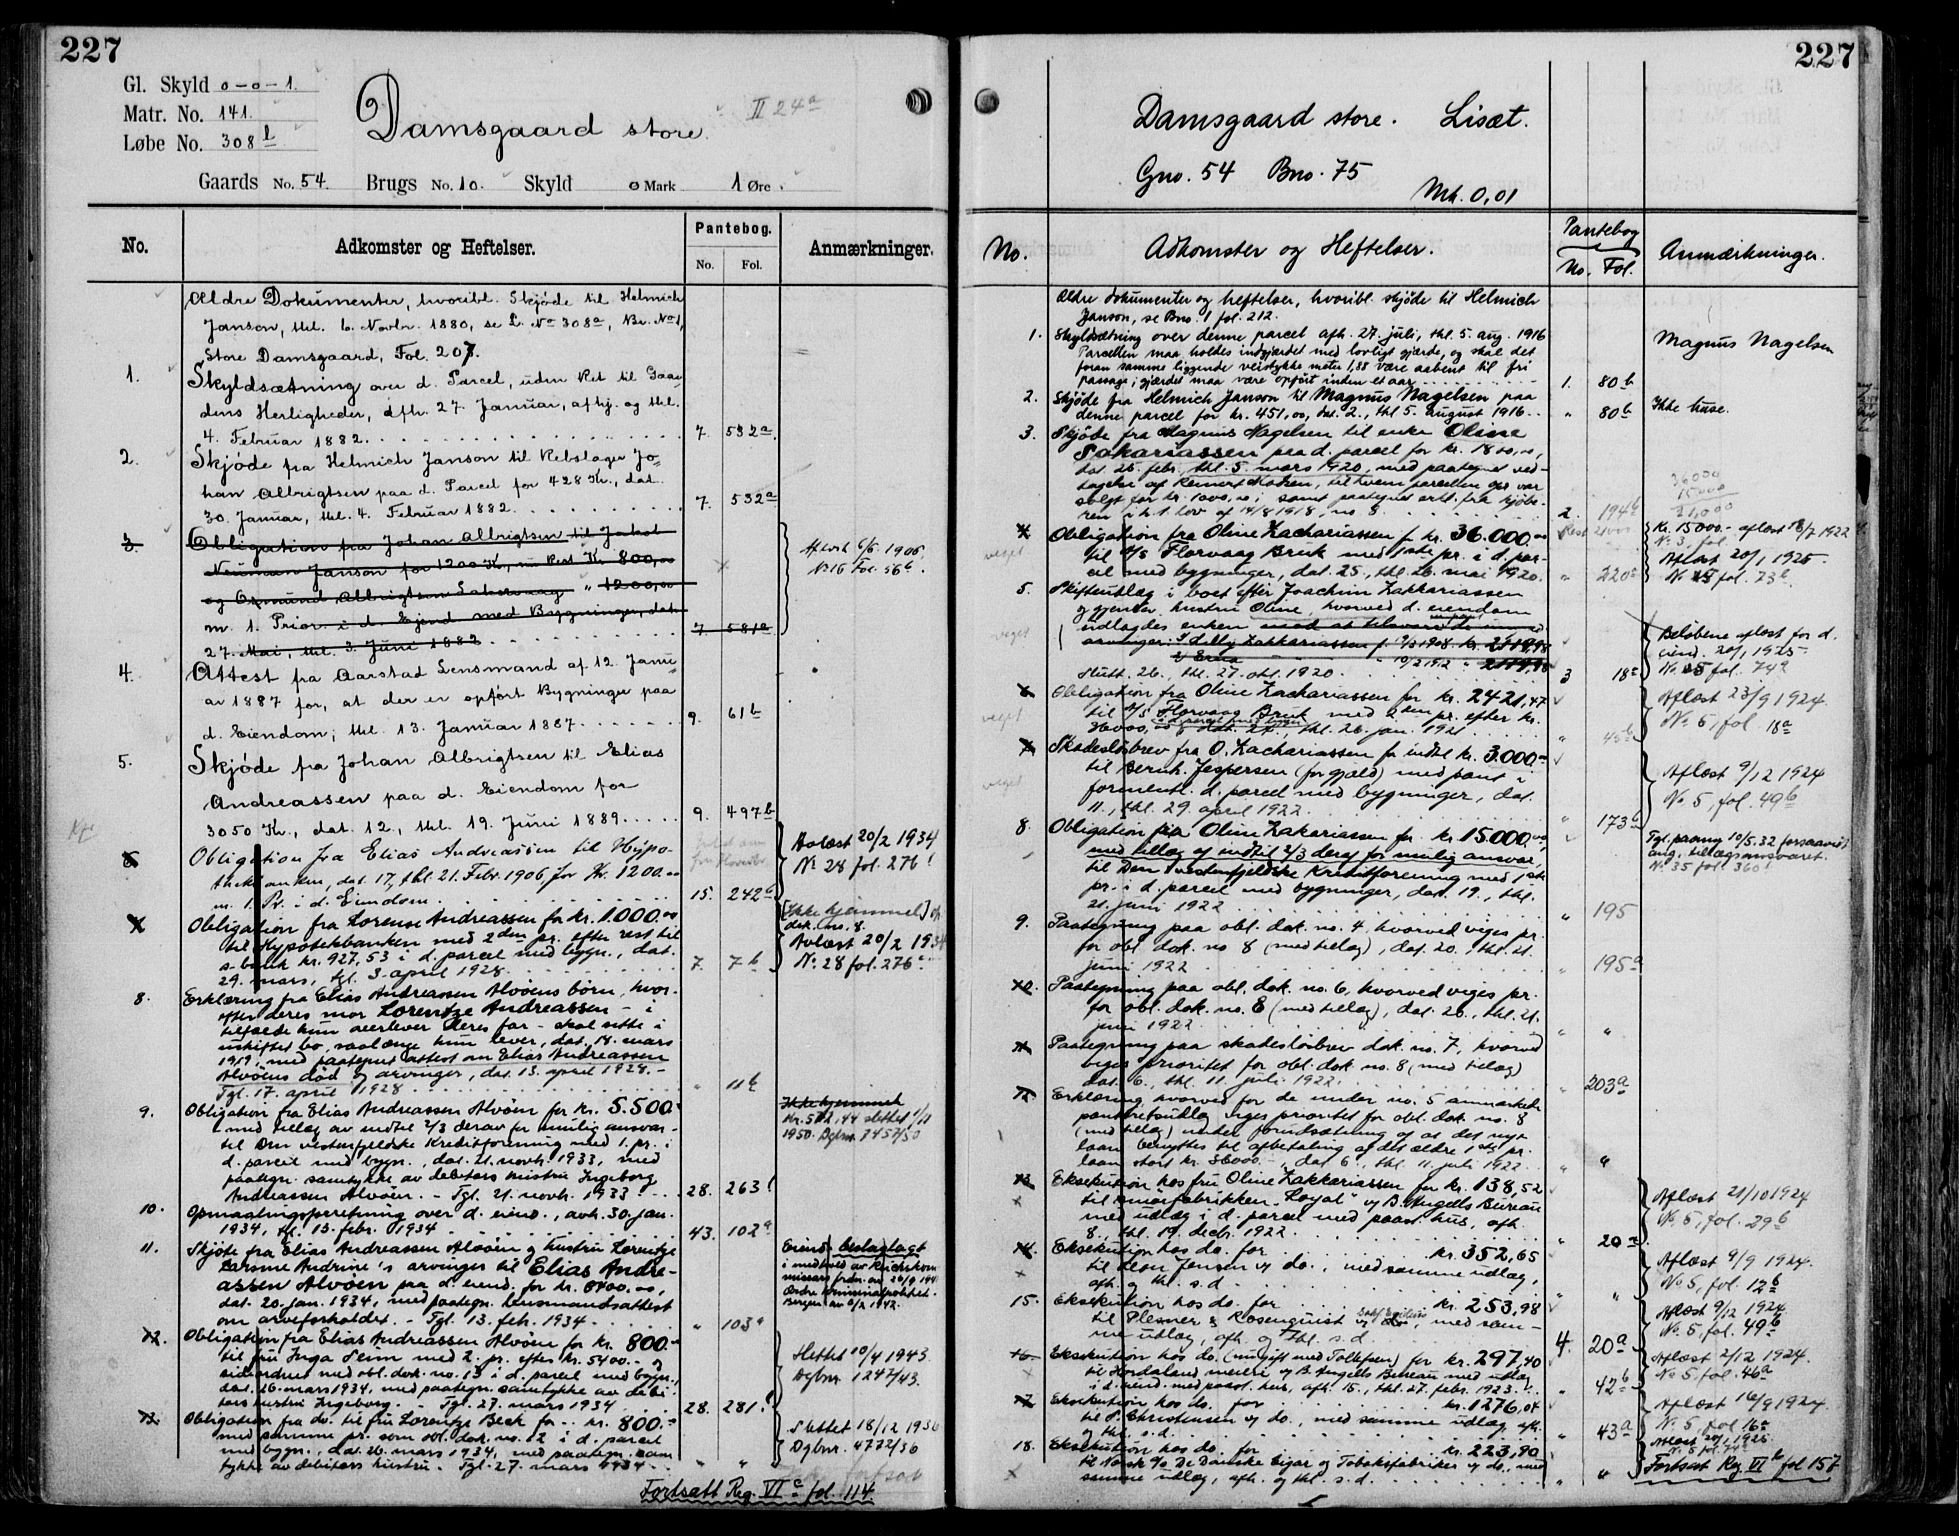 227
Gl. Skyld 0-0-1.
Matr. No. 141.
Løbe No. 308 b
Damsgaard store.
II 24a
Gaards No. 54. Brugs No. 10. Skyld 0 Mark 1 Øre.
No. Adkomster og Heftelser. Pantebog. No. Fol. Anmærkninger.
Ældre Dokumenter, hvoribl. Skjøde til Helmich
Janson, thl. 6. Novbr. 1880, se L. No 308a, Br. No 1,
Store Damsgaard, Fol. 207.
1. Skyldsætning over d. Parcel, uden Ret til Gaar-
dens Herligheder, afh. 27. Januar, afhj. og thl.
4. Februar 1882. 7. 532a.
2. Skjøde fra Helmich Janson til Rebslager Jo-
han Albrigtsen paa d. Parcel for 428 Kr., dat.
30. Januar, thl. 4. Februar 1882. 7. 532a
3. Obligation fra Johan Albrigtsen til Jakob
Neuman Janson for 1200 Kr., nu Rest Kr. 800,00
og Osmund Albrigtsen Laksevaag " 1200,00
m. 1. Prior. i d. Ejend. med Bygninger, dat.
27. Mai, thl. 3. Juni 1882 7. 581a
Aflæst 6/6 1906.
No 16 Fol. 56b.
4. Attest fra Aarstad Lensmand af 12. Janu-
ar 1887 for, at der er opført Bygninger paa
d. Eiendom; thl. 13. Januar 1887. 9. 61b
5. Skjøde fra Johan Albrigtsen til Elias
Andreassen paa d. Eiendom for
3050 Kr., dat. 12., thl. 19. Juni 1889. 9. 497b
6. Obligation fra Elias Andreassen til Hypo-
thekbanken, dat. 17, thl. 21. Febr. 1906 for Kr. 1200.00
m. 1. Pr. i d. Eiendom. 15. 242b
Avlæst 20/2 1934
No 28 fol. 276!
7. Obligation fra Lorense Andreassen for kr. 1.000.00
til Hypotekbanken med 2den pr. efter rest til
s. bank kr. 927,53 i d. parcel med bygn., dat.
29. mars, tgl. 3. april 1928. 7. 7b
[Ikke hjemmel] cfr.
dok. no. 8.
Avlæst 20/2 1934
No 28 fol. 276
8. Erklæring fra Elias Andreassen Alvøens børn, hvor-
efter deres mor Lorentze Andreassen - i
tilfælde hun overlever deres far - skal sitte i
uskiftet bo, saalænge hun lever, dat. 14. mars
1919, med paategnet attest om Elias Andreassen
Alvøens død og arvinger, dat. 13. april 1928. -
Tgl. 17. april 1928 " 11b
9. Obligation fra Elias Andreassen Alvøen for kr. 5.500.-
med tillæg av indtil 2/3 derav for mulig ansvar
til Den vestenfjeldske Kreditforening med 1. pr. i
d. parcel med bygn., dat. 21. novbr. 1933, med
paategn. samtykke av debitors hustru Ingeborg
Andreassen Alvøen. - Tgl. 21. novbr. 1933 28. 263!
Ikke hjemmel
Kr. 512,44 slettet 1/11
1950. Dgbnr. 7457/50
10. Opmaalingsforretning over d. eiend., avh. 30. jan.
1934, tgl. 13. febr. 1934 43. 102a
11. Skjøte fra Elias Andreassen Alvøen og hustru Lorentze
Larsine Andrine's arvinger til Elias Andre-
assen Alvøen paa d. eiend. for kr. 8400.00,
dat. 20. jan. 1934, med paategn. lensmandsattest
om arveforholdet. - Tgl. 13. feb. 1934 " 103a
Eiend. beslaglagt
i medhold av Rikskom-
missars fordn. av 26/9 1941
Ordre kriminalpolitiet
Bergen av 6/2 1942.
12. Obligation fra Elias Andreassen Alvøen for kr. 800.-
til fru Inga Seim med 2. pr. efter kr. 5400.- og
sideordnet med obl. dok. no. 13 i d. parcel med bygn.,
dat. 26. mars 1934, med paategn. samtykke av debi-
tors hustru Ingeborg. - Tgl. 27. mars 1934 28. 281.!
Slettet 10/4 1943.
Dgbnr. 1247/43.
13. Obligation fra do. til fru Lorentze Beck for kr. 800.-
med samme pr. som obl. dok. no. 12 i d. parcel
med bygn., dat. 26. mars 1934, med paategn. sam-
tykke av debitors hustru. - Tgl. 27. mars 1934 " "
Slettet 18/12 1936
Dgbnr. 4772/36
Fortsatt Reg. VI c fol. 114
227
Damsgaard store. Lisæt.
Gno. 54 Bno. 75
Mk. 0,01
No. Adkomster og Heftelser. Pantebog No. Fol. Anmærkninger.
Ældre dokumenter og heftelser, hvoribl. skjøde til Helmich
Janson, se Bno. 1 fol. 212.
1. Skyldsætning over denne parcel afh. 27. juli, thl. 5. aug. 1916
Parcellen maa holdes indgjærdet med lovligt gjærde, og skal det
foran samme liggende veistykke meter 1,38 være aabent til fri
passage; gjærdet maa være opført inden et aar 1. 80b
Magnus Nagelsen
2. Skjøde fra Helmich Janson til Magnus Nagelsen paa
denne parcel for kr. 451,00, dat. 2., thl. 5. august 1916 " 80b
Ikke huse.
3. Skjøde fra Magnus Nagelsen til enke Oline
Sakariassen paa d. parcel for kr. 1800,00,
dat. 26. febr., thl. 5. mars 1920, med paategnet ved-
tagelse af Reinert Mohen, til hvem parcellen før var
solgt for kr. 1000,00; samt paategnet erkl. fra kjøbe-
ren i h.t. lov af 14/8 1918 no. 8 2. 194b
36000
15000
21,000
4. Obligation fra Oline Zachariassen f. kr. 36.000.00
til A/S Florvaag Bruk med 1ste pr. i d. par-
cel med bygninger, dat. 25., thl. 26. mai 1920. " 220a
Rest 21000
Kr. 15000.- aflæst 18/7 1922
No 3, fol.
Aflæst 20/1 1925.
No fol. 73b
viget
5. Skifteutlæg i boet efter Joachim Zakkariassen
og gjenlev. hustru Oline, hvorved d. eiendom
udlagdes enken mod at tilsvare de
arvinger: 3 18a
Slutt. 26., thl. 27. okt. 1920
Beløbene aflæst for d.
eiend. 20/1 1925
No fol. 74a
viget
6. Obligation fra Oline Zachariassen for kr. 2421,47
til A/S Florvaag Bruk med 2den pr. efter kr.
36000, dat. 24., thl. 26. jan. 1921 " 45b
Aflæst 23/9 1924.
No 5, fol 18a
viget
7. Skadesløsbrev fra O. Zachariassen for indtil kr. 3.000.-
til Bernh. Jespersen (for gjæld) med pant i
forment. d. parcel med bygninger, dat.
11., thl. 29. april 1922 " 173b
Aflæst 9/12 1924
No 5, fol. 49b
viget
8. Obligation fra Oline Zakariassen for kr. 15000.00,
med tillæg af indtil 2/3 deraf for mulig ansvar,
til Den vestenfjeldske Kreditforening med 1ste
pr. i d. parcel med bygninger, dat. 19., thl.
21. juni 1922 " 195
Tgl. paategn 10/5.32
ang. tillægsansvaret.
No 35 fol 360!
9. Paategning paa obl. dok. no. 4, hvorved viges pr.
for obl. dok. no 8 (med tillæg), dat. 20., thl. 21.
juni 1922 " 195a
10. Paategning paa obl. dok. no. 6, hvorved viges pr.
for obl. dok. no. 8 (med tillæg), dat. 20., thl. 21.
juni 1922 " "
11. Paategning paa skadesløsbrev dok. no. 7, hvorved
viges prioritet for obl. dok. no. 8 (med tillæg)
dat. 6., thl. 11. juli 1922. " 203a
12. Erklæring, hvorved for de under no. 5 anmærkede
panteretsutlæg viges prioritet for obl. dok. no. 8
(med tillæg) under forudsætning af at det nye
laan benyttes til afbetaling af det ældre 1ste pr.
laan stort kr. 36000.-, dat. 6., thl. 11. juli 1922. " "
13. Eksekution hos fru Oline Zakkariassen for kr. 138,52
til smørfabrikken "Loyal" v/ B. Angells Bureau
med udlæg i d. parcel med paast. hus, afh.
8., thl. 19. decb. 1922. " 20a
Aflæst 21/10 1924
No 5, fol. 29b
14. Eksekution hos do. for kr. 352,65
til Jensen v/ do., med samme udlæg,
afh. og thl. s. d. " "
Aflæst 9/9 1924.
No 5, fol. 12b
15. Eksekution hos do. for kr. 253,98
til Plesner & Rosenquist v/ , med sam-
me udlæg, afh. og thl. s. d. 4. 20a
Aflæst 9/12 1924.
No 5. fol. 49b
16. Eksekution hos do. (nu gift med Tollefsen) for kr. 297,40
til Hordaland meieri v/ B. Angells Bureau med udlæg
i d. eiend. med paast. hus, afh. 15., thl. 27. febr. 1923. " 42b
Aflæst 2/12 1924.
No 5, fol. 46a
17. Eksekution hos do. for kr. 1276,04
til P. Christensen v/ do., med samme udlæg, afh.
og thl. s. d. " 43a
Aflæst 16/9 1924.
No 5, fol 16a
18. Eksekution hos do. for kr. 223,90
til Norsk A/S De Danske Cigar og Tobaksfabriker v/ do., med
samme udlæg, afh. og thl. s. d. " "
Aflæst 20/1 1925
Fortsat Reg. VI b fol 157